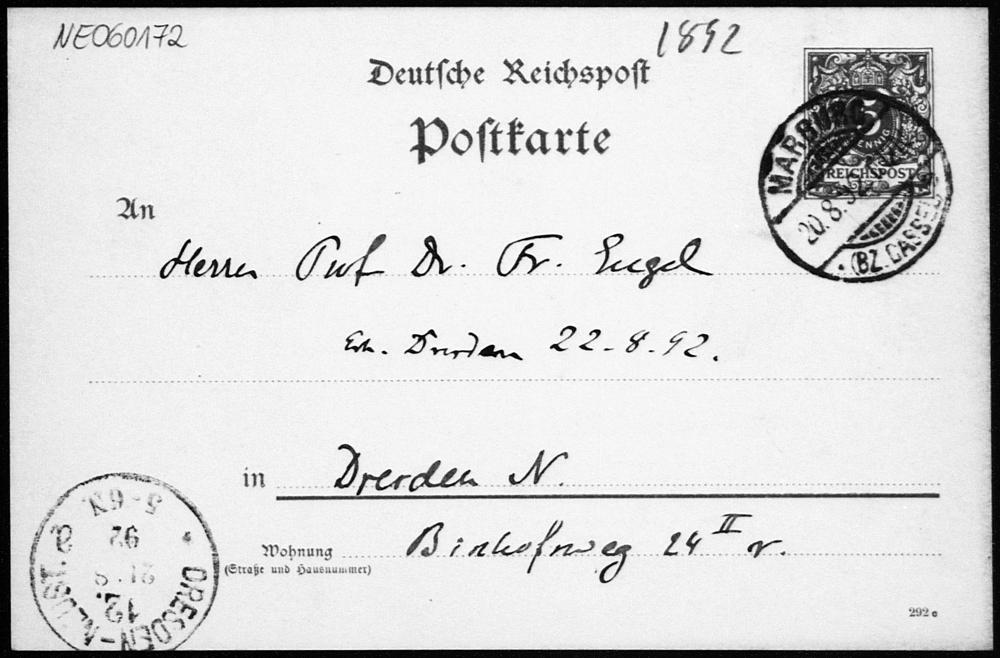 NE060172
1892
Deutsche Reichspost
Postkarte
5
PFENNIG
REICHSPOST
MARBURG
20.8.92
(BZ. CASSEL)
An
Herrn Prof Dr. Fr. Engel
Erh. Dresden 22.8.92.
in Dresden N.
Wohnung Bischofsweg 24 II r.
(Straße und Hausnummer)
DRESDEN-NEUST. a
12.
21.8
92
5-6N.
292 c